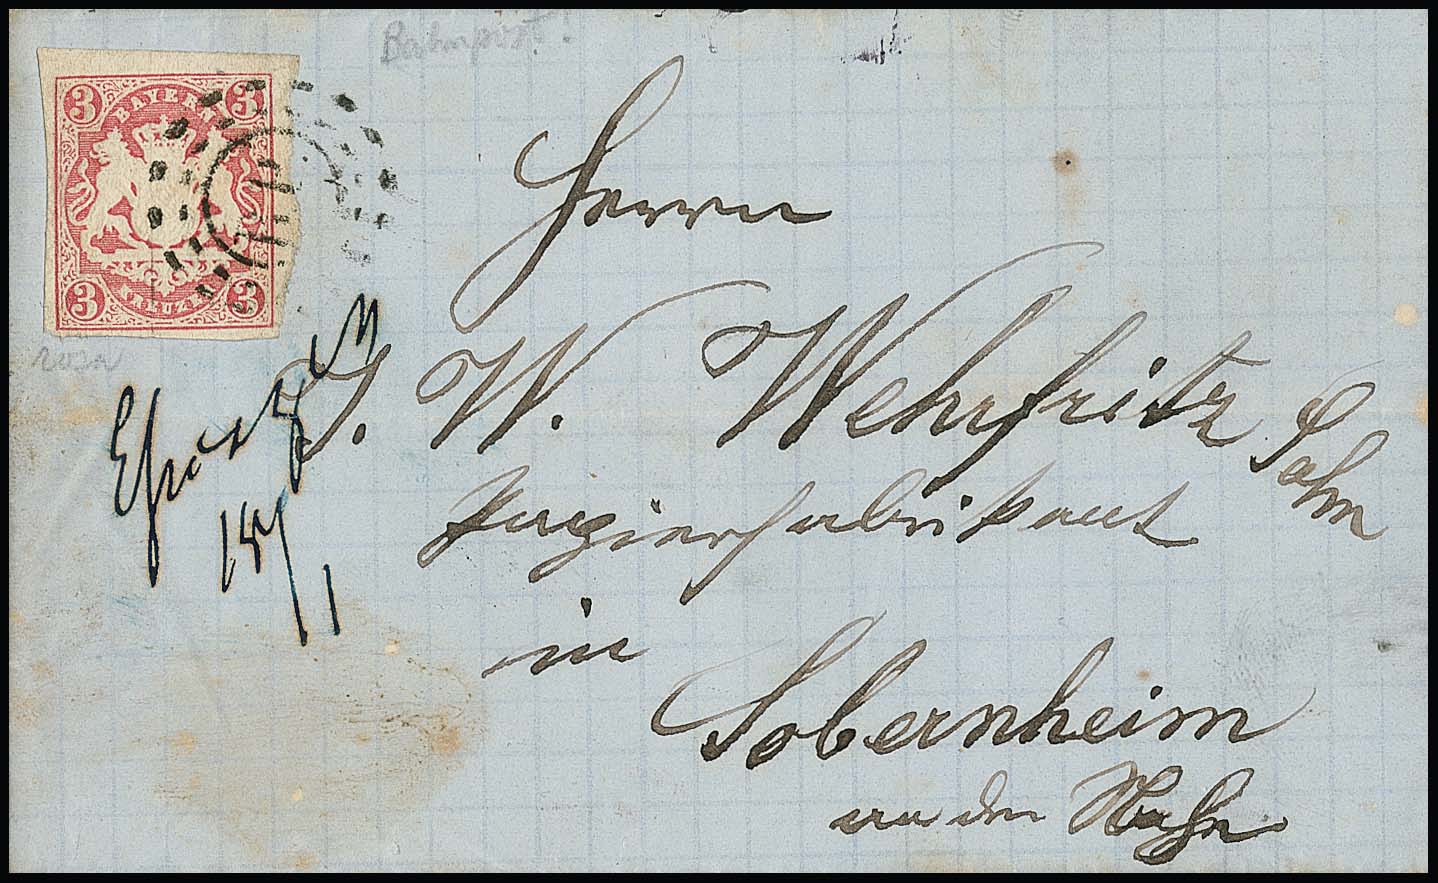 Bahnpost!
3 3
BAYERN
3 3
KREUZER
rosa
Herrn
J. W. Wehrfritz Sohn
Papierfabrikant
in
Sobernheim
an der Nahe